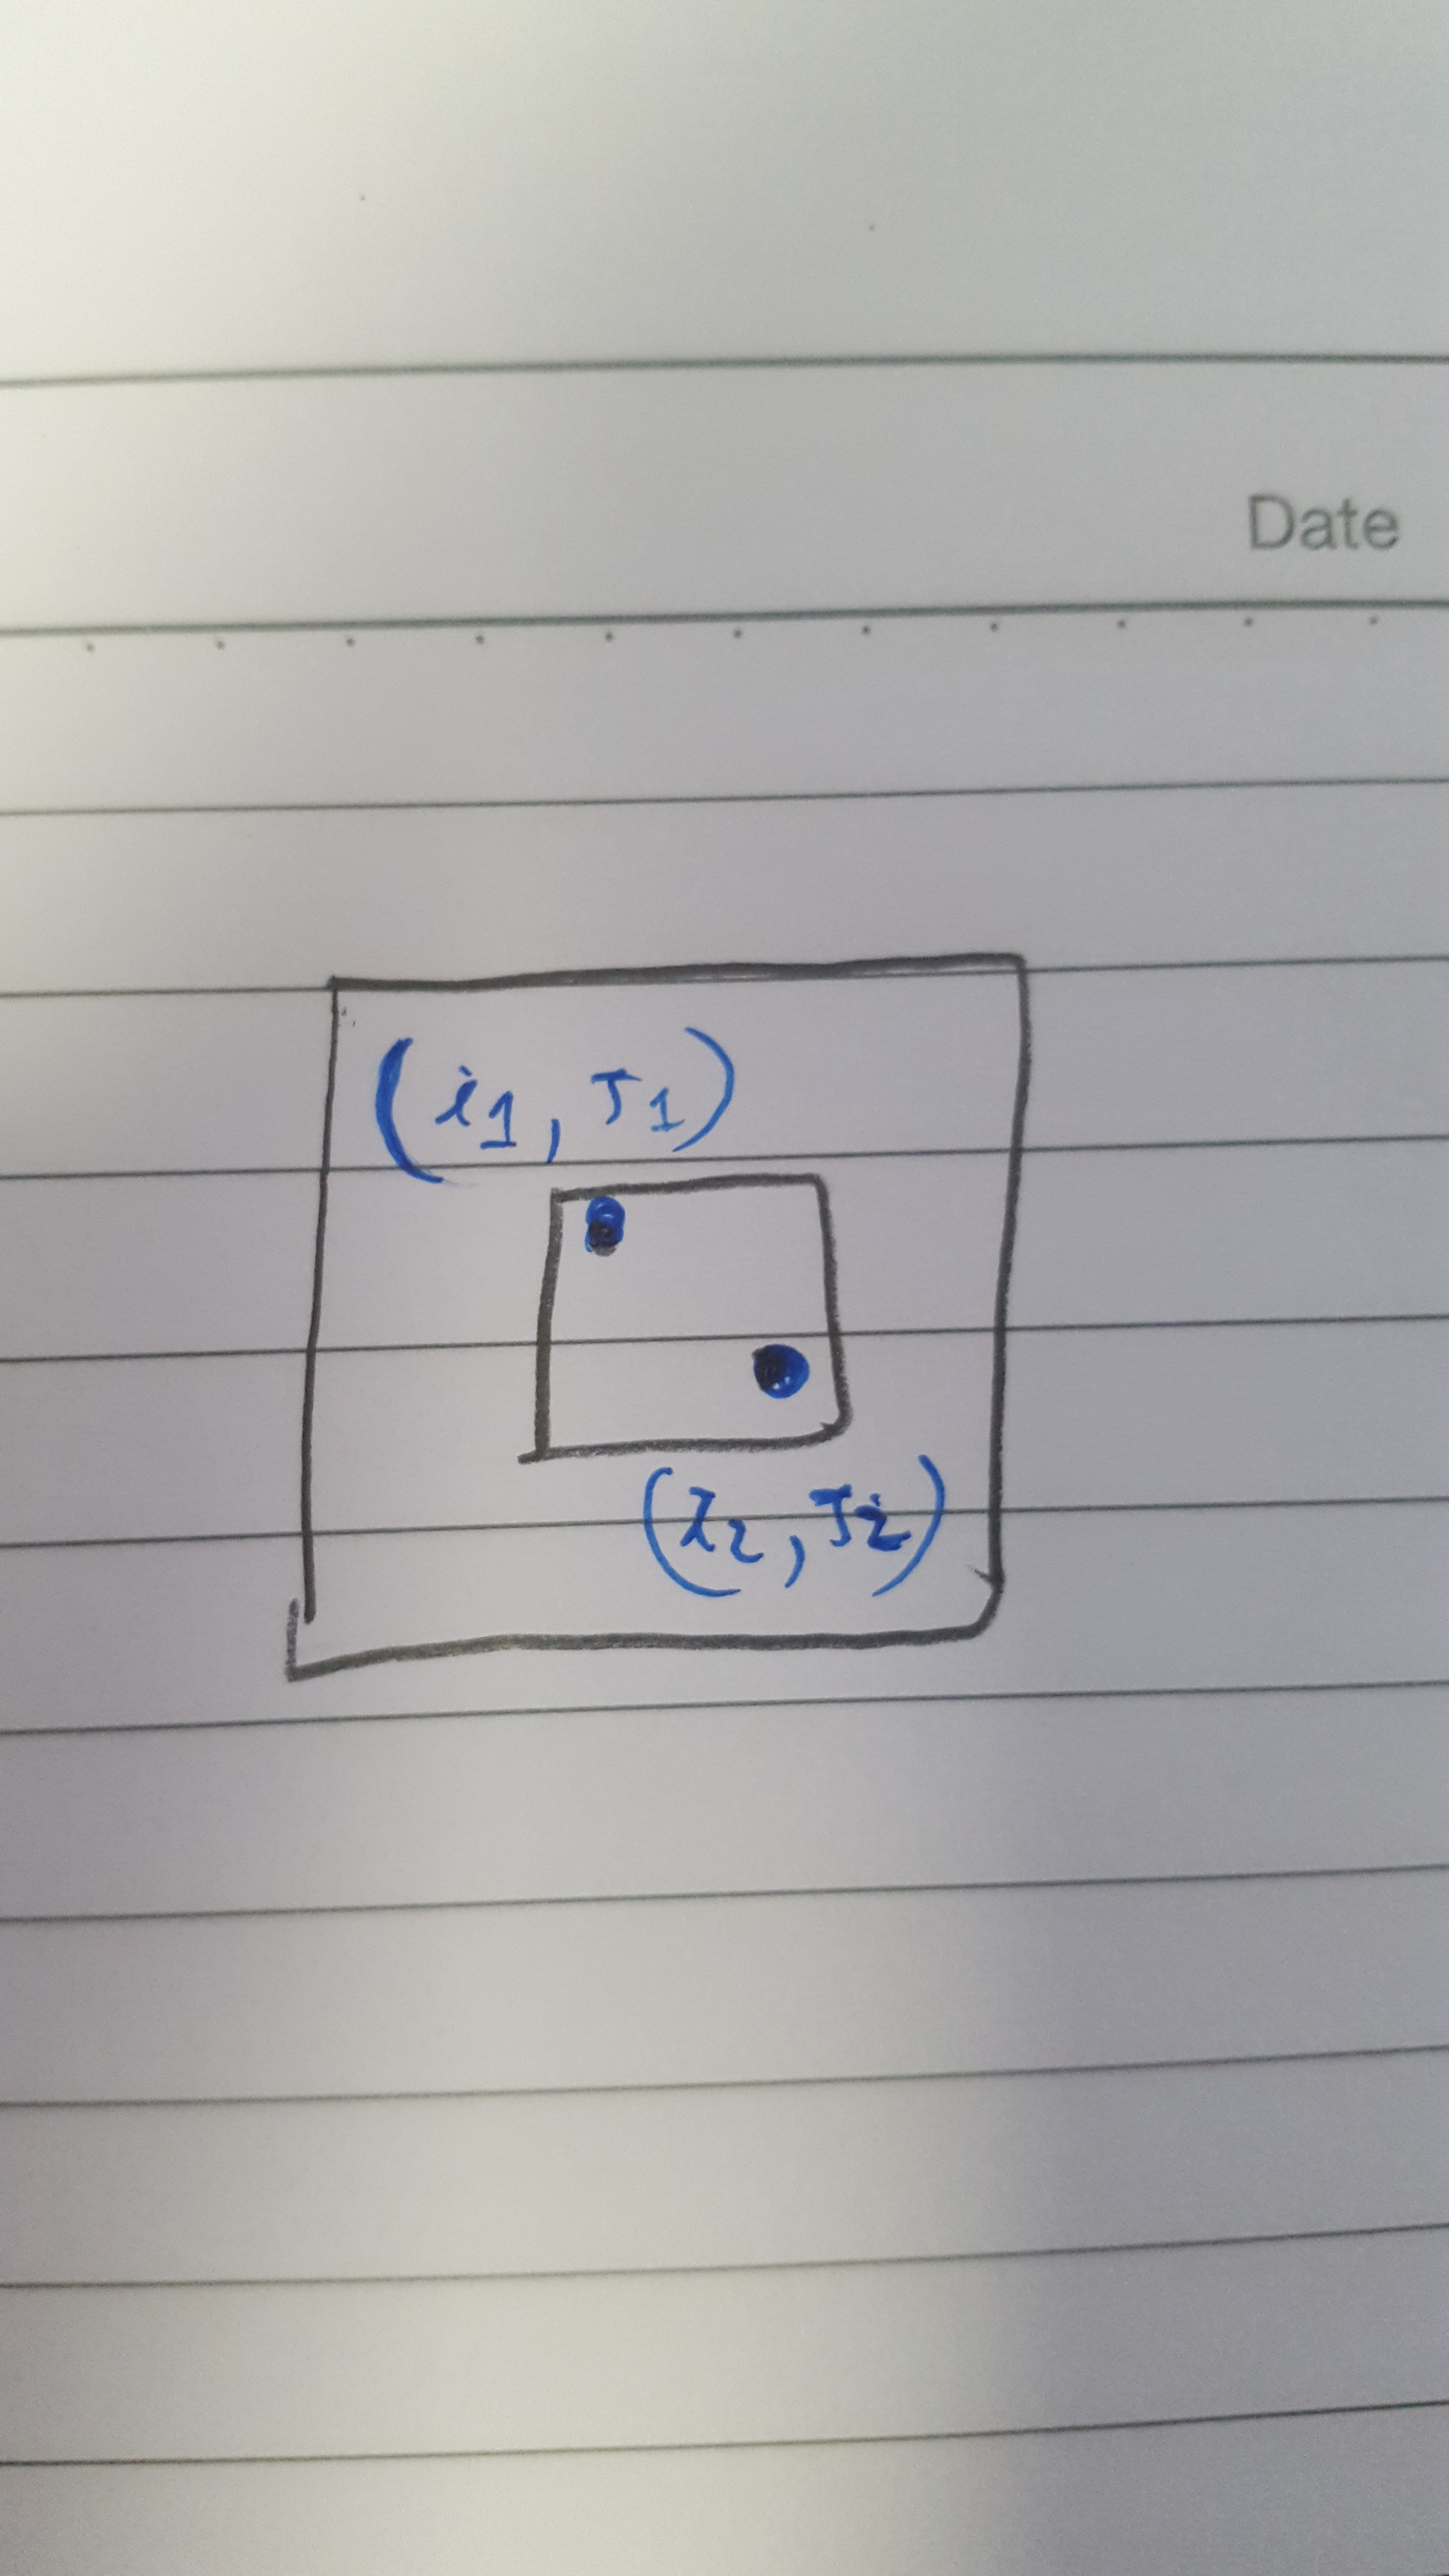 Date
(i1, J1)
(I2, J2)